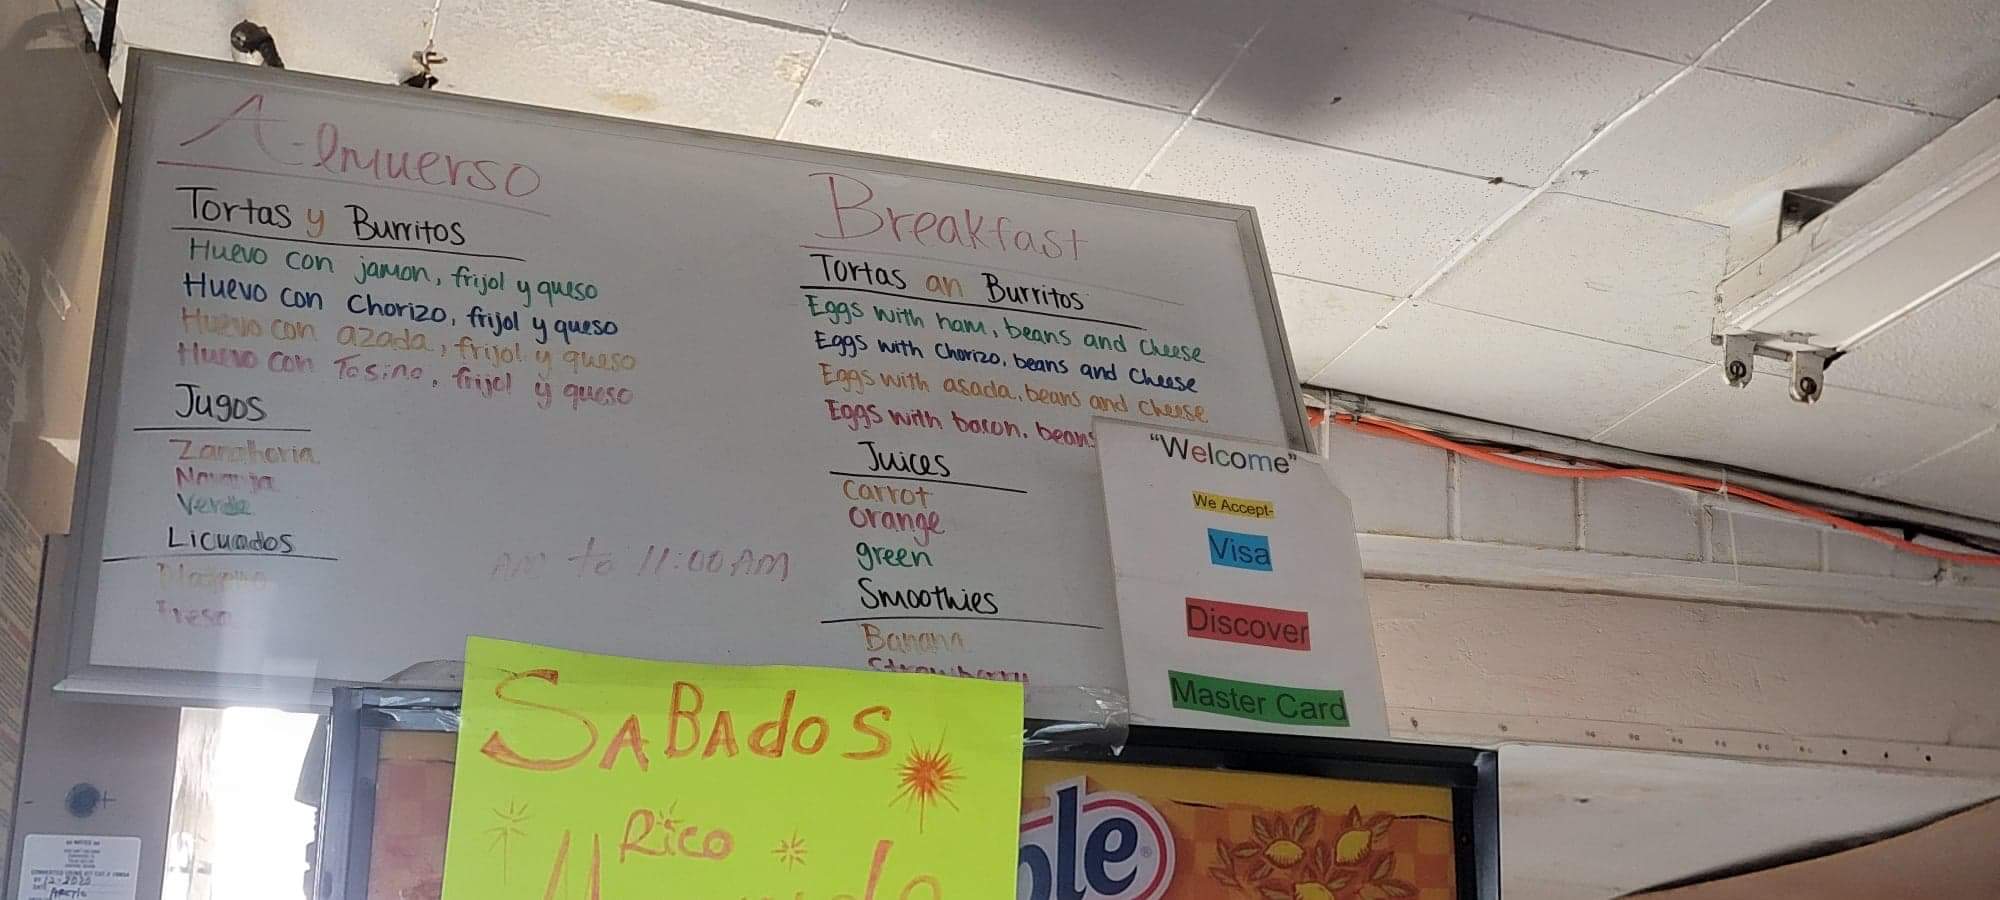 Almuerso
Tortas y Burritos
Huevo con jamon, frijol y queso
Huevo con Chorizo, frijol y queso
Huevo con azada, frijol y queso
Huevo con Tosino, frijol y queso
Jugos
Zanahoria
Naranja
Verde
Licuados
Fresa
AM to 11:00 AM
Breakfast
Tortas an Burritos
Eggs with ham, beans and cheese
Eggs with Chorizo, beans and Cheese
Eggs with asada, beans and cheese
Eggs with bacon, beans
Juices
Carrot
Orange
green
Smoothies
Banana
Strawberry
"Welcome"
We Accept-
Visa
Discover
Master Card
SABAdoS
Rico
ple
12-2020
ARCTIC